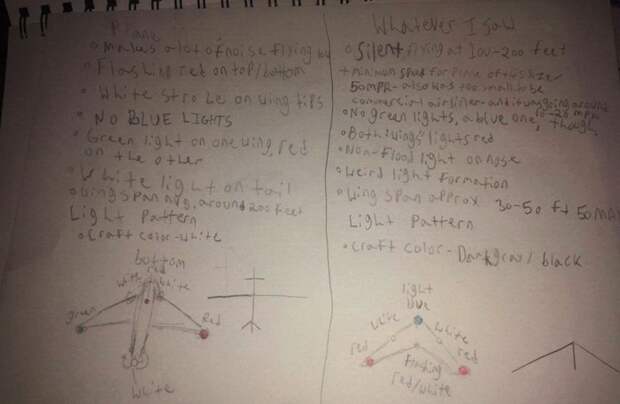 Plane
• Makes a lot of noise flying by
• Flashing red on top/bottom
• White strobe on wing tips
• NO BLUE LIGHTS
• Green light on one wing, red
on the other
• White light on tail
• Wing span avg. around 200 feet
Light Pattern
• Craft color-white
bottom
red
white white
green
Red
White
Whatever I saw
• Silent, flying at 100-200 feet
+ minimum speed for plane of its size
50mph- also was too small to be
commercial airliner- and it was going around
• No green lights, a blue one, though
• Both wings' lights red
• Non-flood light on nose
• Weird light formation
• Wing span approx 30-50 ft
Light Pattern
• Craft color- Dark gray/black
light
blue
white white
red red
flashing
red/white